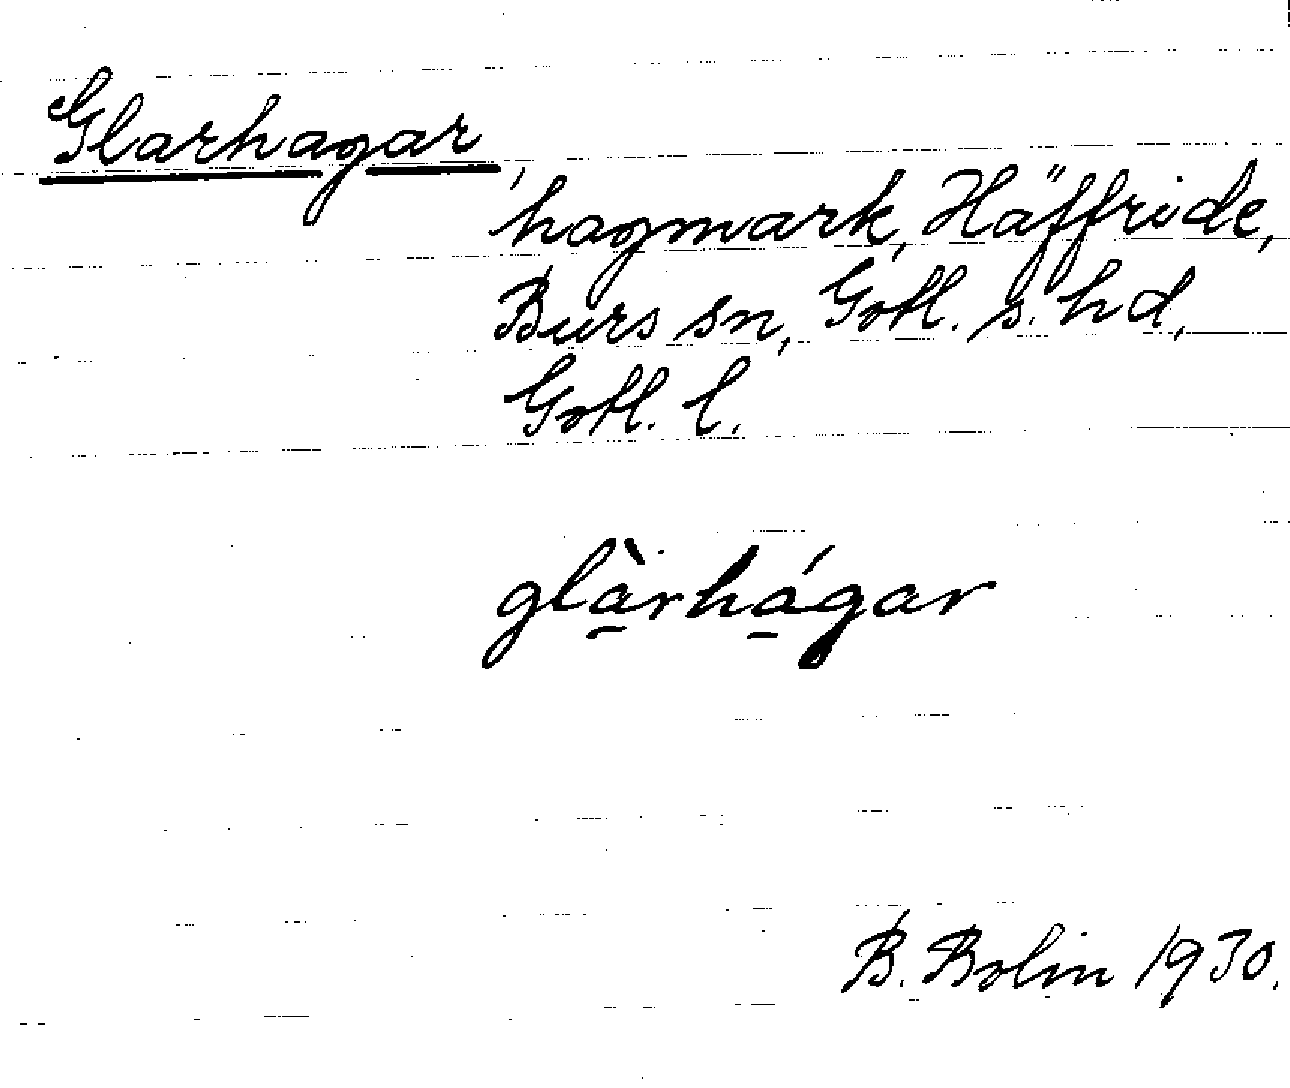 Glarhagar,
hagmark, Häffride,
Burs sn, Gotl. s. hd,
Gotl. l.
glà̱rhá̱gar
B. Bolin 1930.